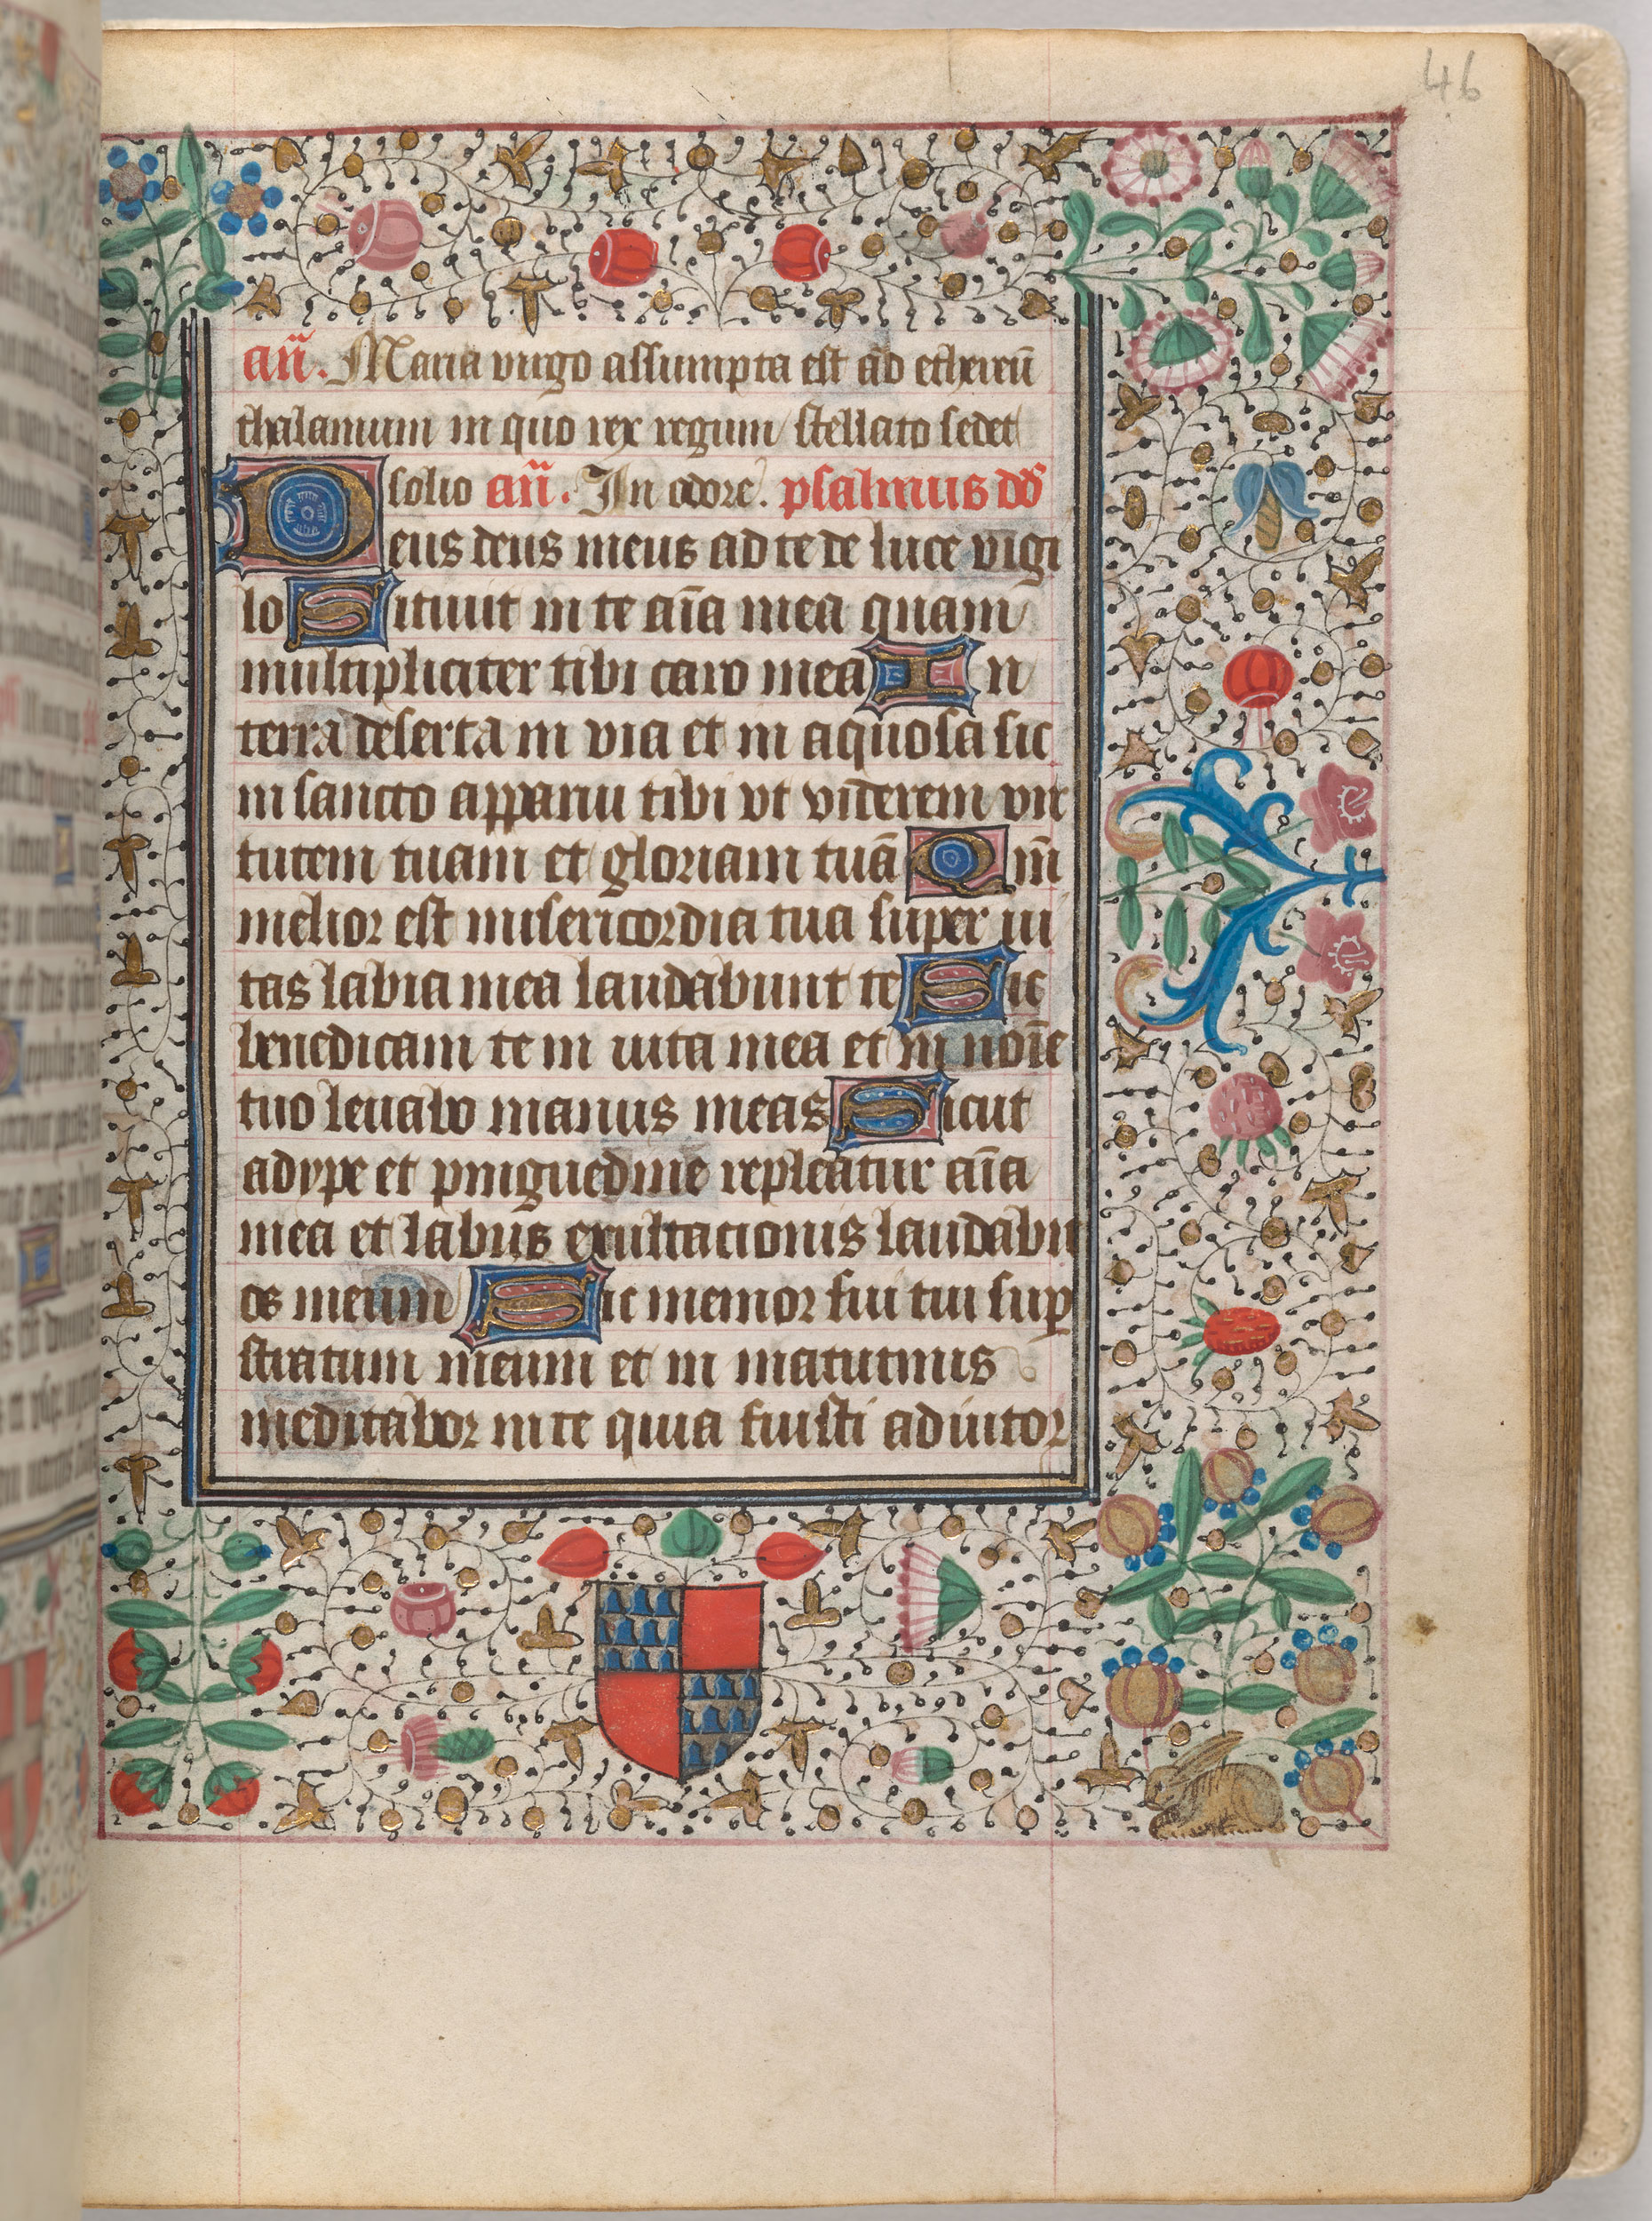 46
añ. Maria virgo assumpta est ad ethereū
thalamum in quo rex regum stellato sedet
solio añ. In odore. psalmus dđ
Deus deus meus ad te de luce vigi
lo Sitiuit in te aīa mea quam
multipliciter tibi caro mea In
terra deserta in via et in aquosa sic
in sancto apparui tibi vt viderem vir
tutem tuam et gloriam tuā Qm̄
melior est misericordia tua super ui
tas labia mea laudabunt te Sic
benedicam te in uita mea et in noīe
tuo leuabo manus meas Sicut
adype et pinguedine repleatur aīa
mea et labiis exultacionis laudabit
os meum Sic memor fui tui sup̄
stratum meum et in matutinis
meditabor in te quia fuisti adiutor